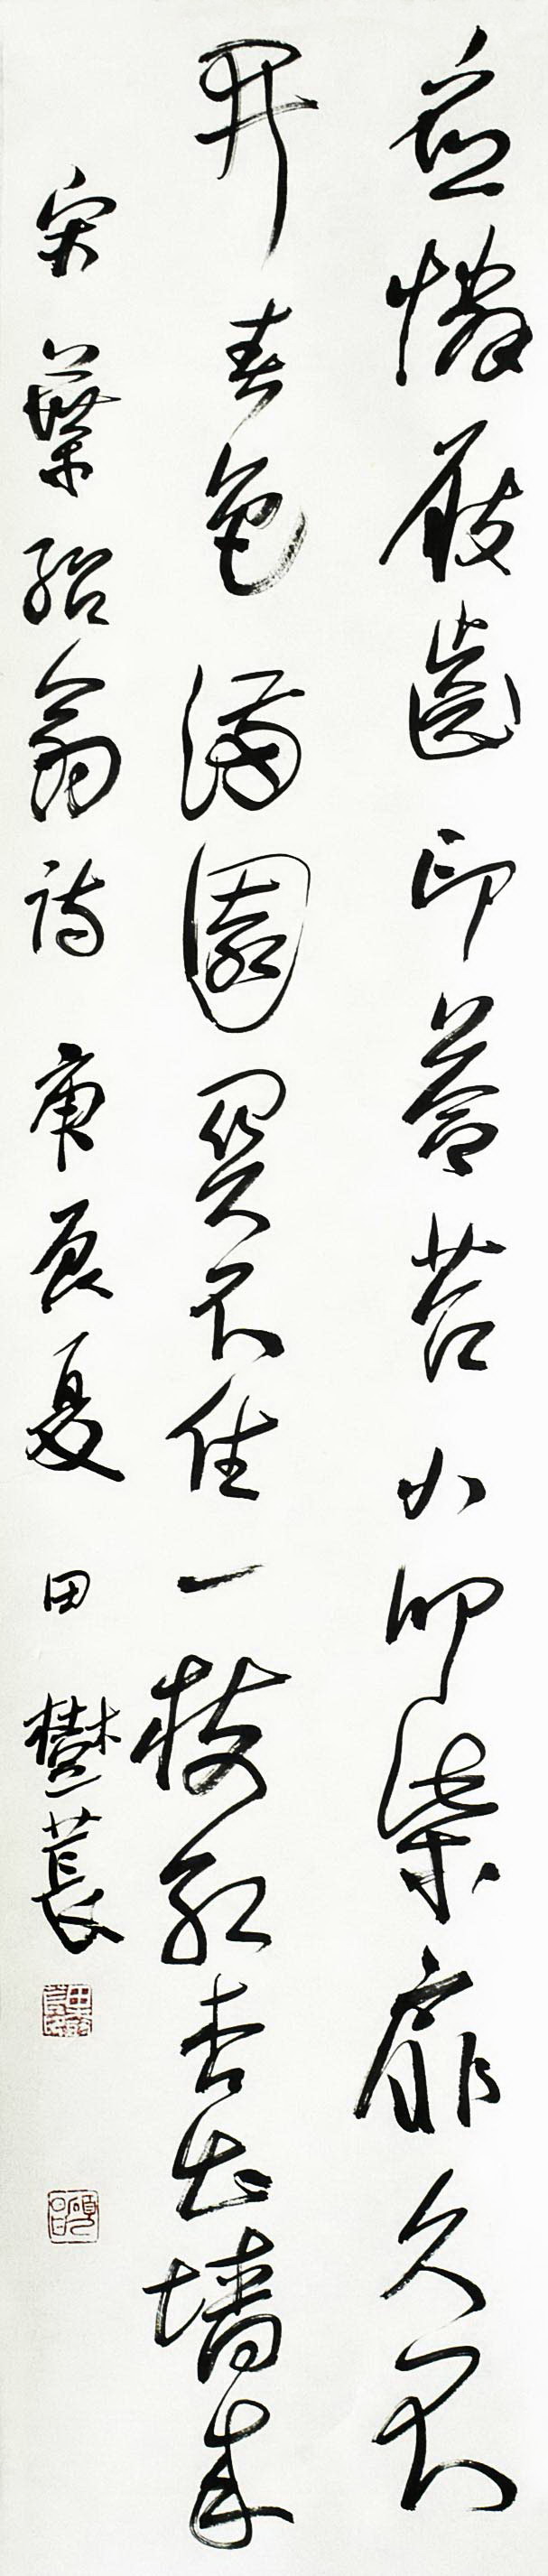 应怜屐齿印苍苔小叩柴扉久不
开春色满园关不住一枝红杏出墙来
宋葉绍翁诗 庚辰夏 田樹萇